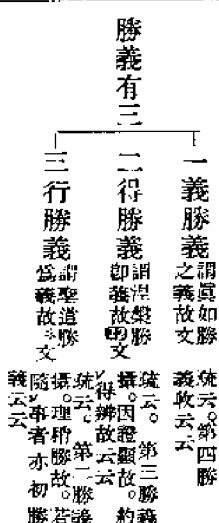 勝義有三
一義勝義
謂眞如勝
之義故文
疏云。第四勝
義攸云云
二得勝義
謂涅槃勝
即義故文
疏云。第三勝義
攝。因證顯故。約
得辨故云云
三行勝義
謂聖道勝
爲義故文
疏云。第二勝義
攝。理稍勝故。若
隨事者亦初勝
義云云